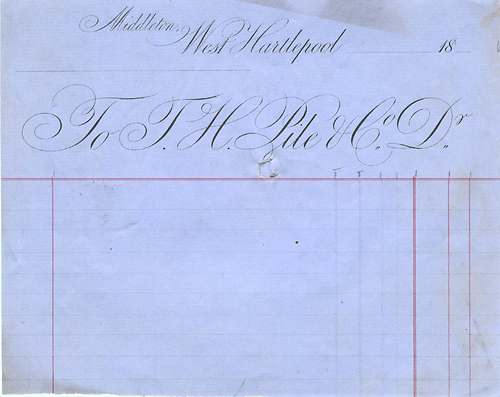 Middleton,
West Hartlepool 18
To T. H. Pile & Co. Dr.